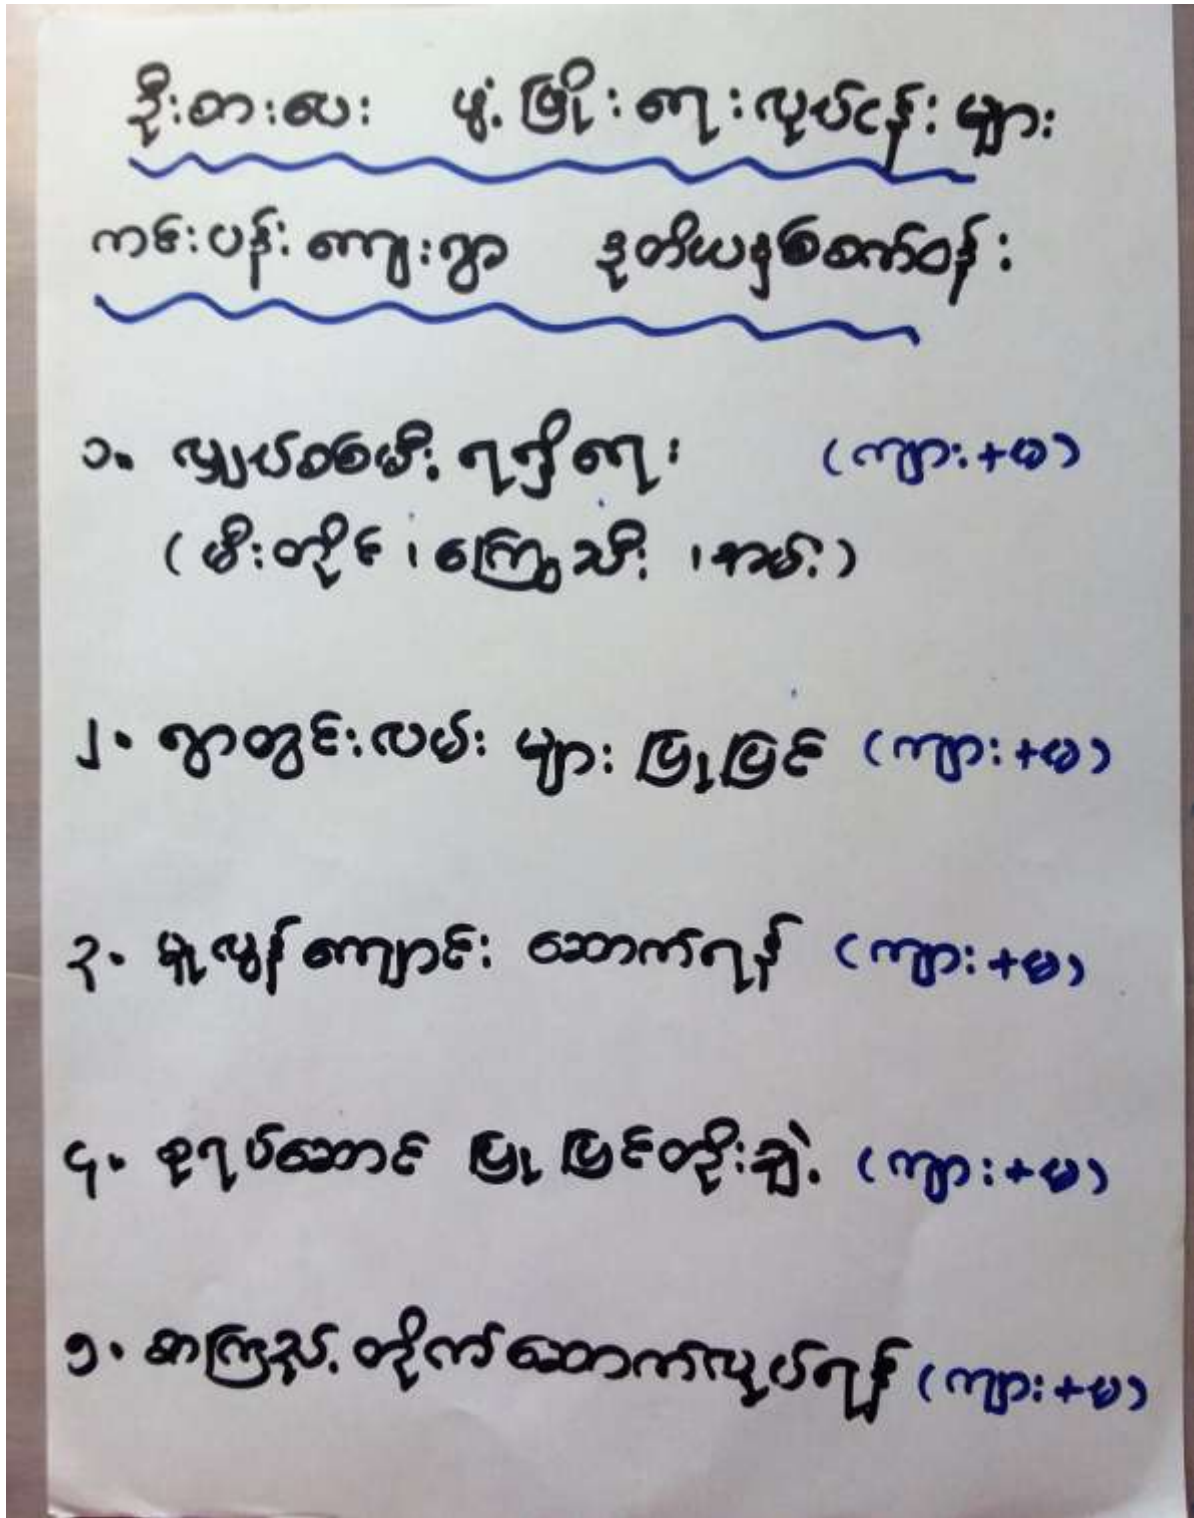 ဦးစားပေး ဖွံ့ဖြိုးရေးလုပ်ငန်းများ
ကင်းပွန်းကျေးရွာ ဒုတိယနှစ်စက်ဝန်း
၁။ လျှပ်စစ်မီးရရှိရေး (ကျား+မ)
(မီးတိုင်၊ ကြေးသီး၊ ထမ်း)
၂။ ရွာတွင်းလမ်းများ ပြုပြင် (ကျား+မ)
၃။ မူလွန်ကျောင်း ဆောက်ရန် (ကျား+မ)
၄။ စုရပ်ဆောင် ပြုပြင်တိုးချဲ့ (ကျား+မ)
၅။ စာကြည့်တိုက်ဆောက်လုပ်ရန် (ကျား+မ)